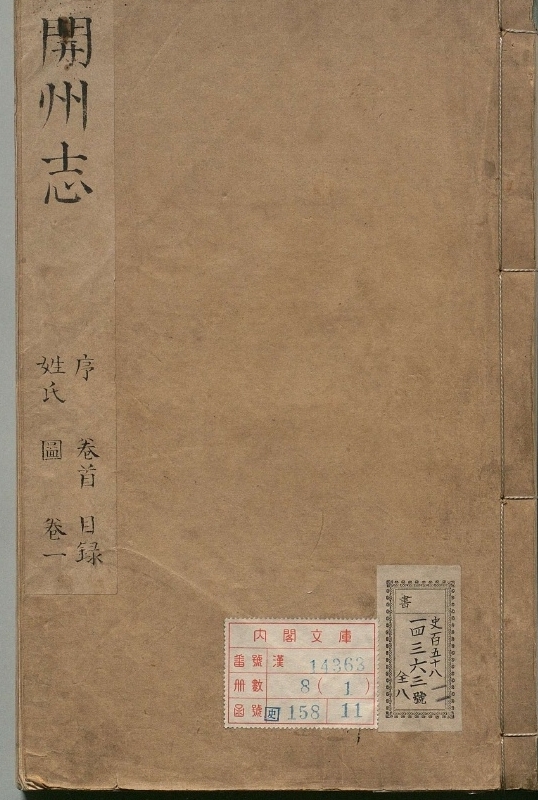 開州志
序 卷首 目録
姓氏 圖 卷一
内閣文庫
番號 漢 14363
冊數 8 ( 1 )
函號 史 158 11
書
史百五十八
一四三六三號
全八